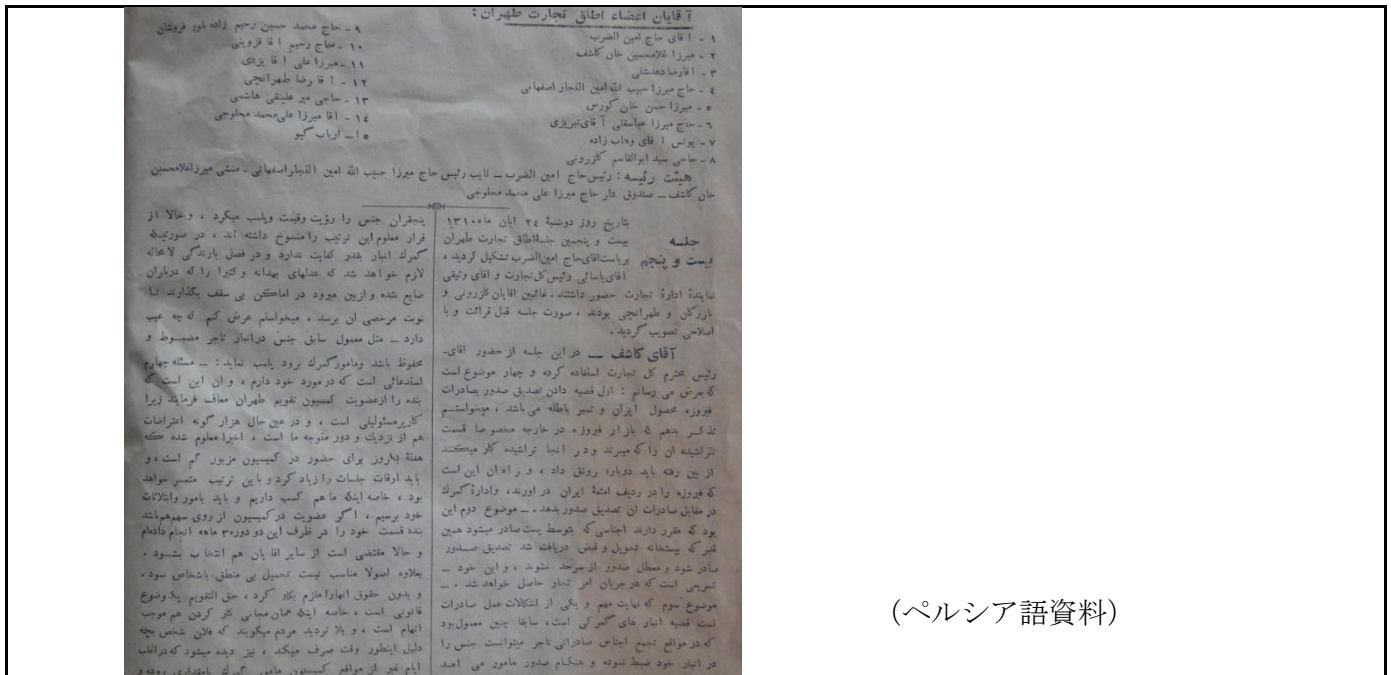 آقایان اعضاء اطاق تجارت طهران :
۱ - آقای حاج امین الضرب
۲ - میرزا غلامحسین خان کاشف
۳ - آقارضا دهدشتی
٤ - حاج میرزا حبیب الله امین التجار اصفهانی
٥ - میرزا حسن خان کورس
٦ - حاج میرزا عباسقلی آقای تبریزی
۷ - یونس آقای وهاب زاده
۸ - حاجی سید ابوالقاسم کازرونی
۹ - حاج محمد حسین رحیم زاده بلور فروشان
۱۰ - حاج رحیم آقا قزوینی
۱۱ - میرزا علی آقا یزدی
۱۲ - آقا رضا طهرانچی
۱۳ - حاجی میر علینقی هاشمی
۱٤ - آقا میرزا علی‌محمد محلوجی
۱٥ - ارباب گیو
هیئت رئیسه : رئیس حاج امین الضرب – نایب رئیس حاج میرزا حبیب الله امین التجار اصفهانی - منشی میرزا غلامحسین
خان کاشف – صندوق دار حاج میرزا علی محمد محلوجی
جلسه
بیست و پنجم
بتاریخ روز دوشنبهٔ ۲٤ ابان ماه ۱۳۱۰
بیست و پنجمین جلسهٔ اطاق تجارت طهران
بریاست اقای حاج امین الضرب تشکیل گردید ،
اقای یاسائی رئیس کل تجارت و اقای وثیقی
نمایندهٔ ادارهٔ تجارت حضور داشتند . غائبین اقایان کازرونی و
بازرگان و طهرانچی بودند ، صورت جلسه قبل قرائت و با
اصلاحی تصویب گردید .
آقای کاشف – در این جلسه از حضور اقای-
رئیس محترم کل تجارت استفاده کرده و چهار موضوع است
که بعرض می رسانم : اول قضیه دادن تصدیق صدور بصادرات
فیروزه محصول ایران و تمبر باطله می باشد ، میخواستم
تذکر بدهم که بازار فیروزه در خارجه مخصوصا قسمت
نتراشیده ان را که میبرند و در انجا تراشیده کار میکنند
از بین رفته باید دوباره رونق داد ، و راه ان این است
که فیروزه را در ردیف امتعهٔ ایران در اورند، وادارهٔ گمرک
در مقابل صادرات ان تصدیق صدور بدهد . – موضوع دوم این
بود که مقرر دارند اجناسی که بتوسط پست صادر میشود همین
قدر که بپستخانه تحویل و قبض دریافت شد تصدیق صدور
صادر شود و معطل صدور از سرحد نشوند ، و این خود –
تسریعی است که در جریان امر تجار حاصل خواهد شد . –
موضوع سوم که نهایت مهم و یکی از اشکالات عمل صادرات
است قضیه انبار های گمرکی است، سابقا چنین معمول بود
که در مواقع تجمع اجناس صادراتی تاجر میتوانست جنس را
در انبار خود ضبط نموده و هنگام صدور مامور می امد
پنجقران جنس را رؤیت وقیمت وپلمب میکرد ، وحالا از
قرار معلوم این ترتیب را منسوخ داشته اند ، در صورتیکه
گمرک انبار بقدر کفایت ندارد و در فصل بارندگی لامحاله
لازم خواهد شد که عدلهای بهدانه وکتیرا را که درباران
ضایع شده وازبین میرود در اماکن بی سقف بگذارند تا
نوبت مرخصی ان برسد ، میخواستم عرض کنم که چه عیب
دارد – مثل معمول سابق جنس درانبار تاجر مضبوط و
محفوظ باشد ومامورگمرک برود پلمب نماید : – مسئله چهارم
استدعائی است که در مورد خود دارم ، و ان این است که
بنده را ازعضویت کمسیون تقویم طهران معاف فرمایند زیرا
کارپرمسئولیتی است ، و در عین حال هزار گونه اعتراضات
هم از نزدیک و دور متوجه ما است ، اخیرا معلوم شده که
هفتهٔ یکروز برای حضور در کمیسیون مزبور کم است ، و
باید اوقات جلسات را زیاد کرد و با ین ترتیب متعسر خواهد
بود ، خاصه اینکه ما هم کسب داریم و باید بامور وابتلائات
خود برسیم ، اگر عضویت در کمیسیون از روی سهم‌هم‌باشد
بنده قسمت خود را در ظرف این دو دوره ۳ ماهه انجام داده‌ام
و حالا مقتضی است از سایر اقا یان هم انتخا ب بشود .
بعلاوه اصولا مناسب نیست تحمیل بی منطق باشخاص نمود .
و بدون حقوق انهارا ملزم بکار کرد ، حق التقویم یک موضوع
قانونی است ، خاصه اینکه همان مجانی کار کردن هم موجب
اتهام است ، و بلا تردید مردم میگویند که فلان شخص بچه
دلیل اینطور وقت صرف میکند ، نیز دیده میشود که دراغلب
ایام غیر از مواقع کمیسیون مامور گمرک بامقداری روده و
(ペルシア語資料)